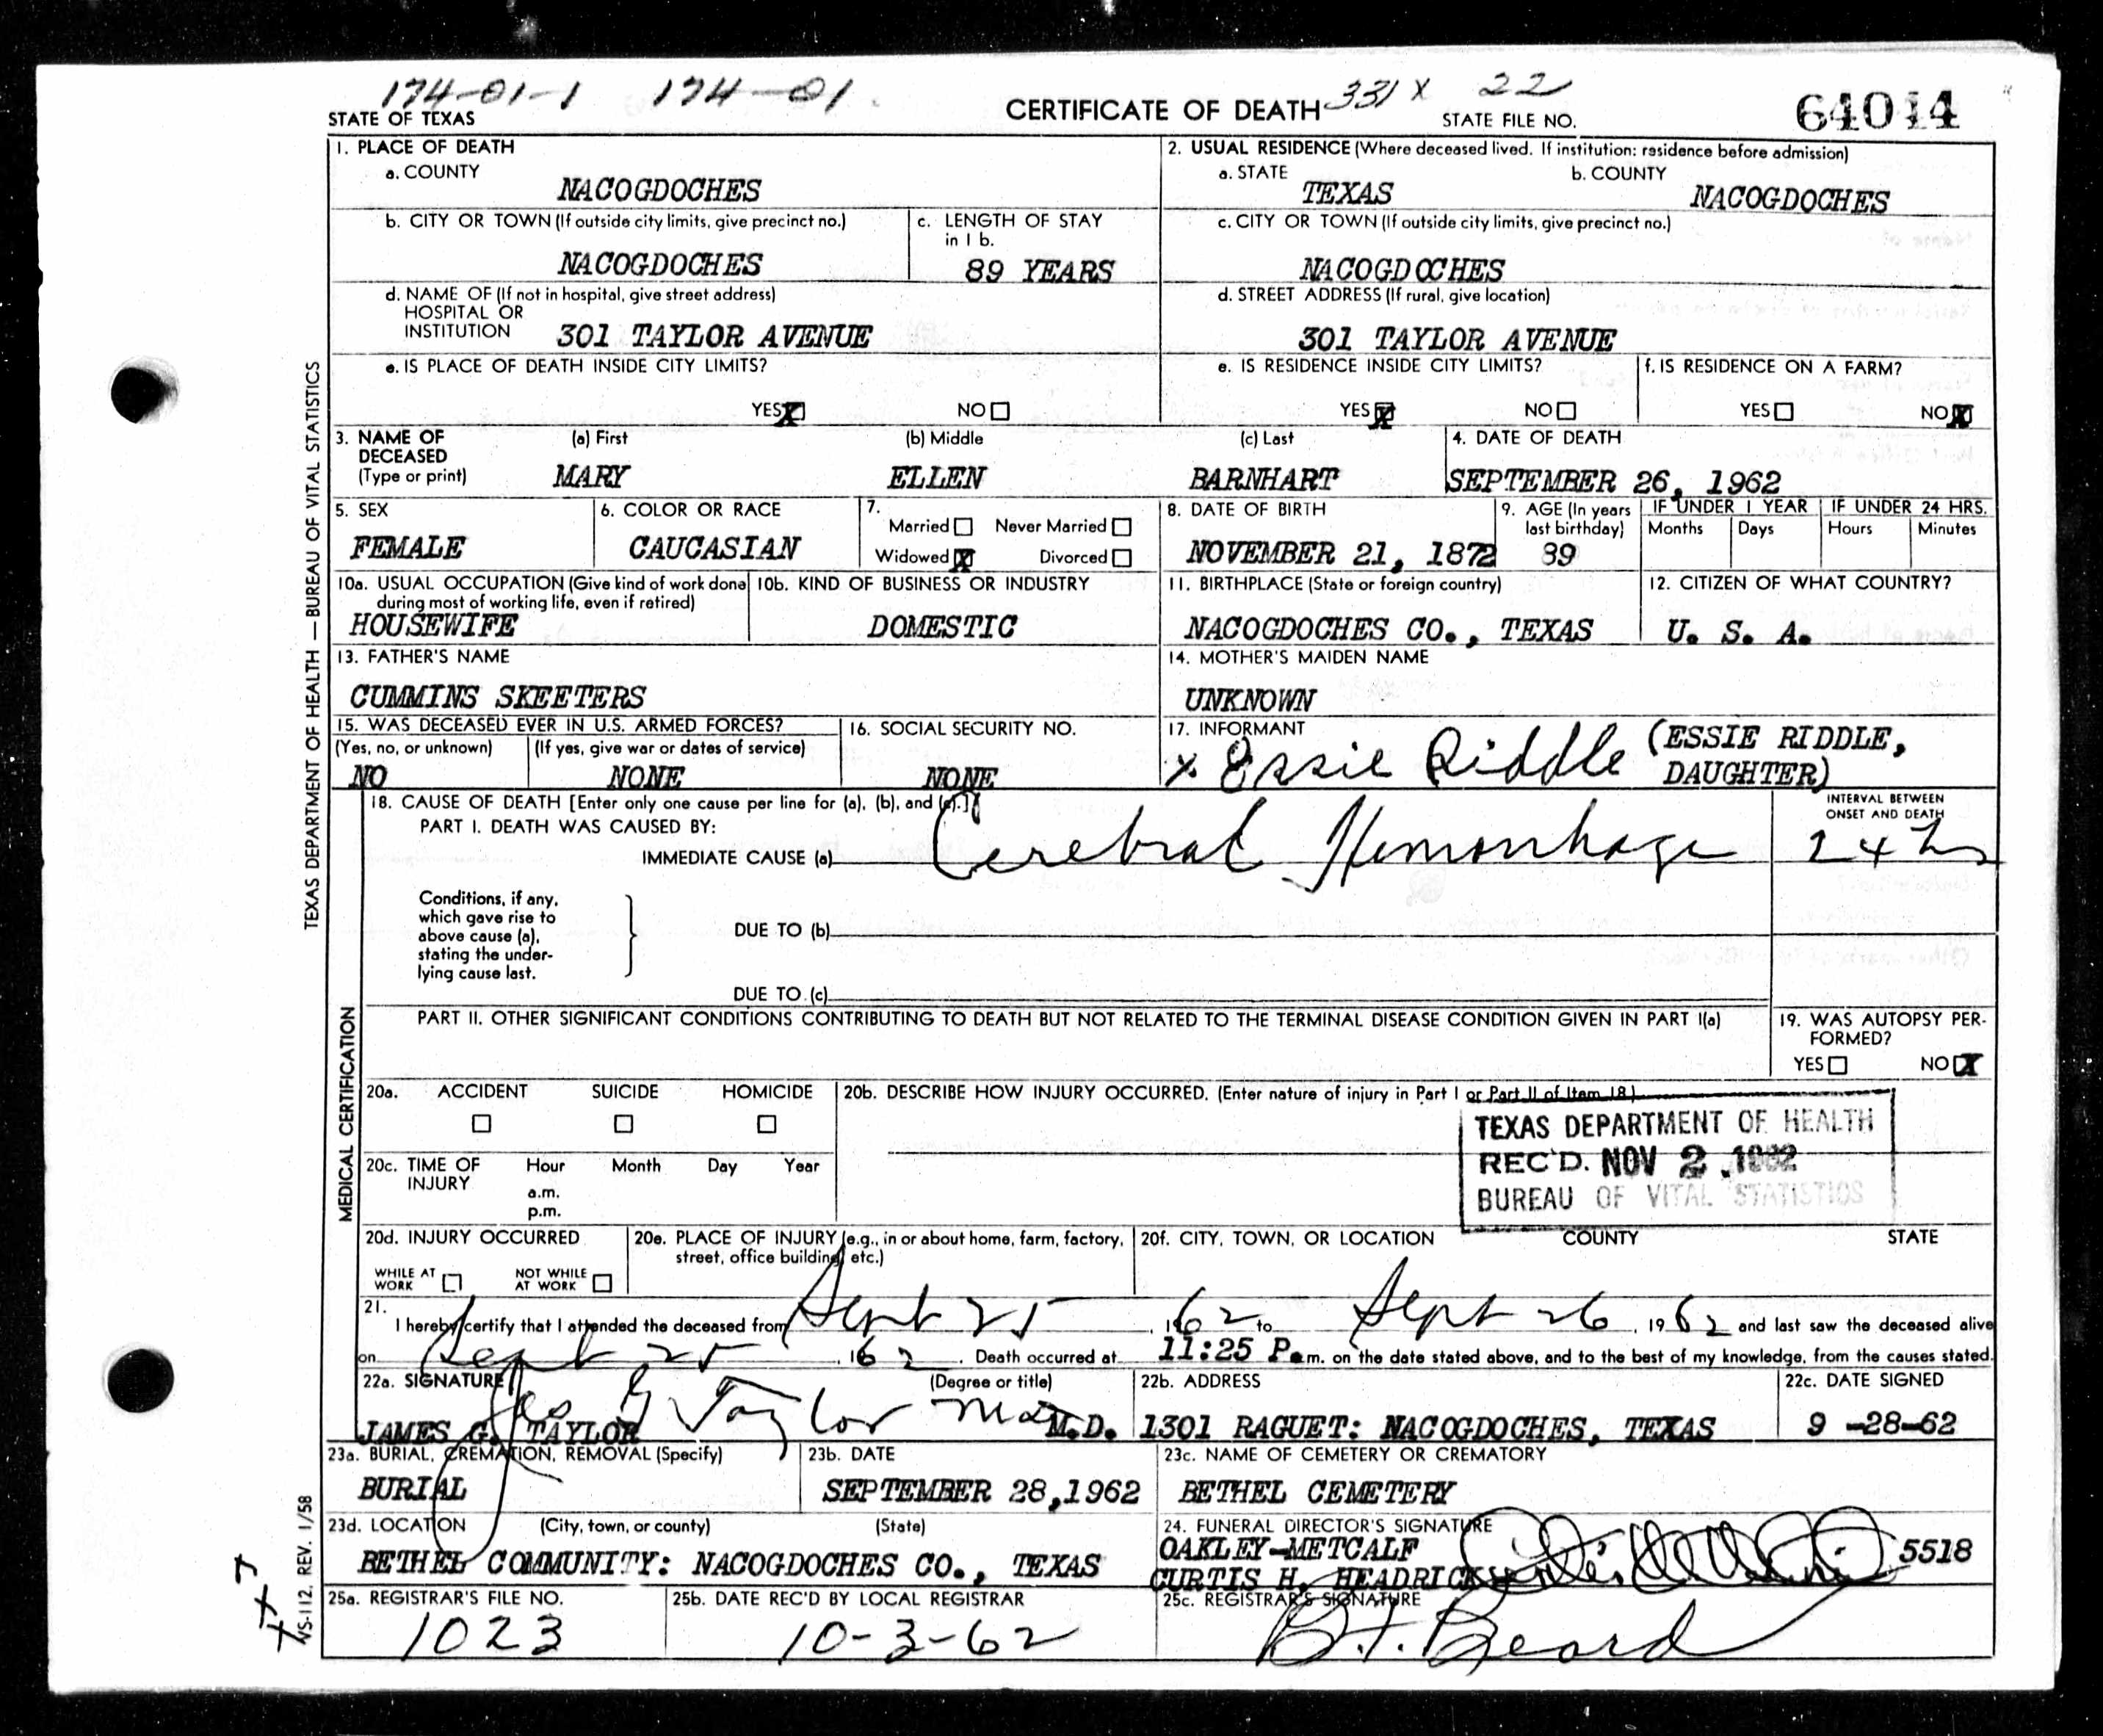 174-01-1 174-01 331 X 22
STATE OF TEXAS CERTIFICATE OF DEATH STATE FILE NO. 64014
1. PLACE OF DEATH
a. COUNTY
NACOGDOCHES
2. USUAL RESIDENCE (Where deceased lived. If institution: residence before admission)
a. STATE b. COUNTY
TEXAS NACOGDOCHES
b. CITY OR TOWN (If outside city limits, give precinct no.)
NACOGDOCHES
c. LENGTH OF STAY
in 1 b.
89 YEARS
c. CITY OR TOWN (If outside city limits, give precinct no.)
NACOGDOCHES
d. NAME OF (If not in hospital, give street address)
HOSPITAL OR
INSTITUTION 301 TAYLOR AVENUE
d. STREET ADDRESS (If rural, give location)
301 TAYLOR AVENUE
e. IS PLACE OF DEATH INSIDE CITY LIMITS?
YES X NO
e. IS RESIDENCE INSIDE CITY LIMITS?
YES X NO
f. IS RESIDENCE ON A FARM?
YES NO X
3. NAME OF
DECEASED
(Type or print)
(a) First (b) Middle (c) Last
MARY ELLEN BARNHART
4. DATE OF DEATH
SEPTEMBER 26, 1962
5. SEX
FEMALE
6. COLOR OR RACE
CAUCASIAN
7.
Married Never Married
Widowed X Divorced
8. DATE OF BIRTH
NOVEMBER 21, 1872
9. AGE (In years
last birthday)
89
IF UNDER 1 YEAR
Months Days
IF UNDER 24 HRS.
Hours Minutes
10a. USUAL OCCUPATION (Give kind of work done
during most of working life, even if retired)
HOUSEWIFE
10b. KIND OF BUSINESS OR INDUSTRY
DOMESTIC
11. BIRTHPLACE (State or foreign country)
NACOGDOCHES CO., TEXAS
12. CITIZEN OF WHAT COUNTRY?
U. S. A.
13. FATHER'S NAME
CUMMINS SKEETERS
14. MOTHER'S MAIDEN NAME
UNKNOWN
15. WAS DECEASED EVER IN U.S. ARMED FORCES?
(Yes, no, or unknown) (If yes, give war or dates of service)
NO NONE
16. SOCIAL SECURITY NO.
NONE
17. INFORMANT
x Essie Riddle (ESSIE RIDDLE,
DAUGHTER)
18. CAUSE OF DEATH [Enter only one cause per line for (a), (b), and (c).]
PART I. DEATH WAS CAUSED BY:
IMMEDIATE CAUSE (a) Cerebral Hemorrhage
INTERVAL BETWEEN
ONSET AND DEATH
24 hrs
Conditions, if any,
which gave rise to
above cause (a),
stating the under-
lying cause last.
DUE TO (b)
DUE TO (c)
PART II. OTHER SIGNIFICANT CONDITIONS CONTRIBUTING TO DEATH BUT NOT RELATED TO THE TERMINAL DISEASE CONDITION GIVEN IN PART I(a)
19. WAS AUTOPSY PER-
FORMED?
YES NO X
20a. ACCIDENT SUICIDE HOMICIDE
20b. DESCRIBE HOW INJURY OCCURRED. (Enter nature of injury in Part I or Part II of Item 18.)
TEXAS DEPARTMENT OF HEALTH
REC'D. NOV 2 1962
BUREAU OF VITAL STATISTICS
20c. TIME OF
INJURY
Hour Month Day Year
a.m.
p.m.
20d. INJURY OCCURRED
WHILE AT
WORK
NOT WHILE
AT WORK
20e. PLACE OF INJURY (e.g., in or about home, farm, factory,
street, office building, etc.)
20f. CITY, TOWN, OR LOCATION COUNTY STATE
21.
I hereby certify that I attended the deceased from Sept 25, 1962 to Sept 26, 1962 and last saw the deceased alive
on Sept 25, 1962. Death occurred at 11:25 P.m. on the date stated above, and to the best of my knowledge, from the causes stated.
22a. SIGNATURE (Degree or title)
Jas G Taylor MD
JAMES G. TAYLOR M.D.
22b. ADDRESS
1301 RAGUET: NACOGDOCHES, TEXAS
22c. DATE SIGNED
9 -28-62
23a. BURIAL, CREMATION, REMOVAL (Specify)
BURIAL
23b. DATE
SEPTEMBER 28,1962
23c. NAME OF CEMETERY OR CREMATORY
BETHEL CEMETERY
23d. LOCATION (City, town, or county) (State)
BETHEL COMMUNITY: NACOGDOCHES CO., TEXAS
24. FUNERAL DIRECTOR'S SIGNATURE
OAKLEY-METCALF
CURTIS H. HEADRICK 5518
25a. REGISTRAR'S FILE NO.
1023
25b. DATE REC'D BY LOCAL REGISTRAR
10-3-62
25c. REGISTRAR'S SIGNATURE
B.F. Beard
TEXAS DEPARTMENT OF HEALTH — BUREAU OF VITAL STATISTICS
MEDICAL CERTIFICATION
VS-112. REV. 1/58